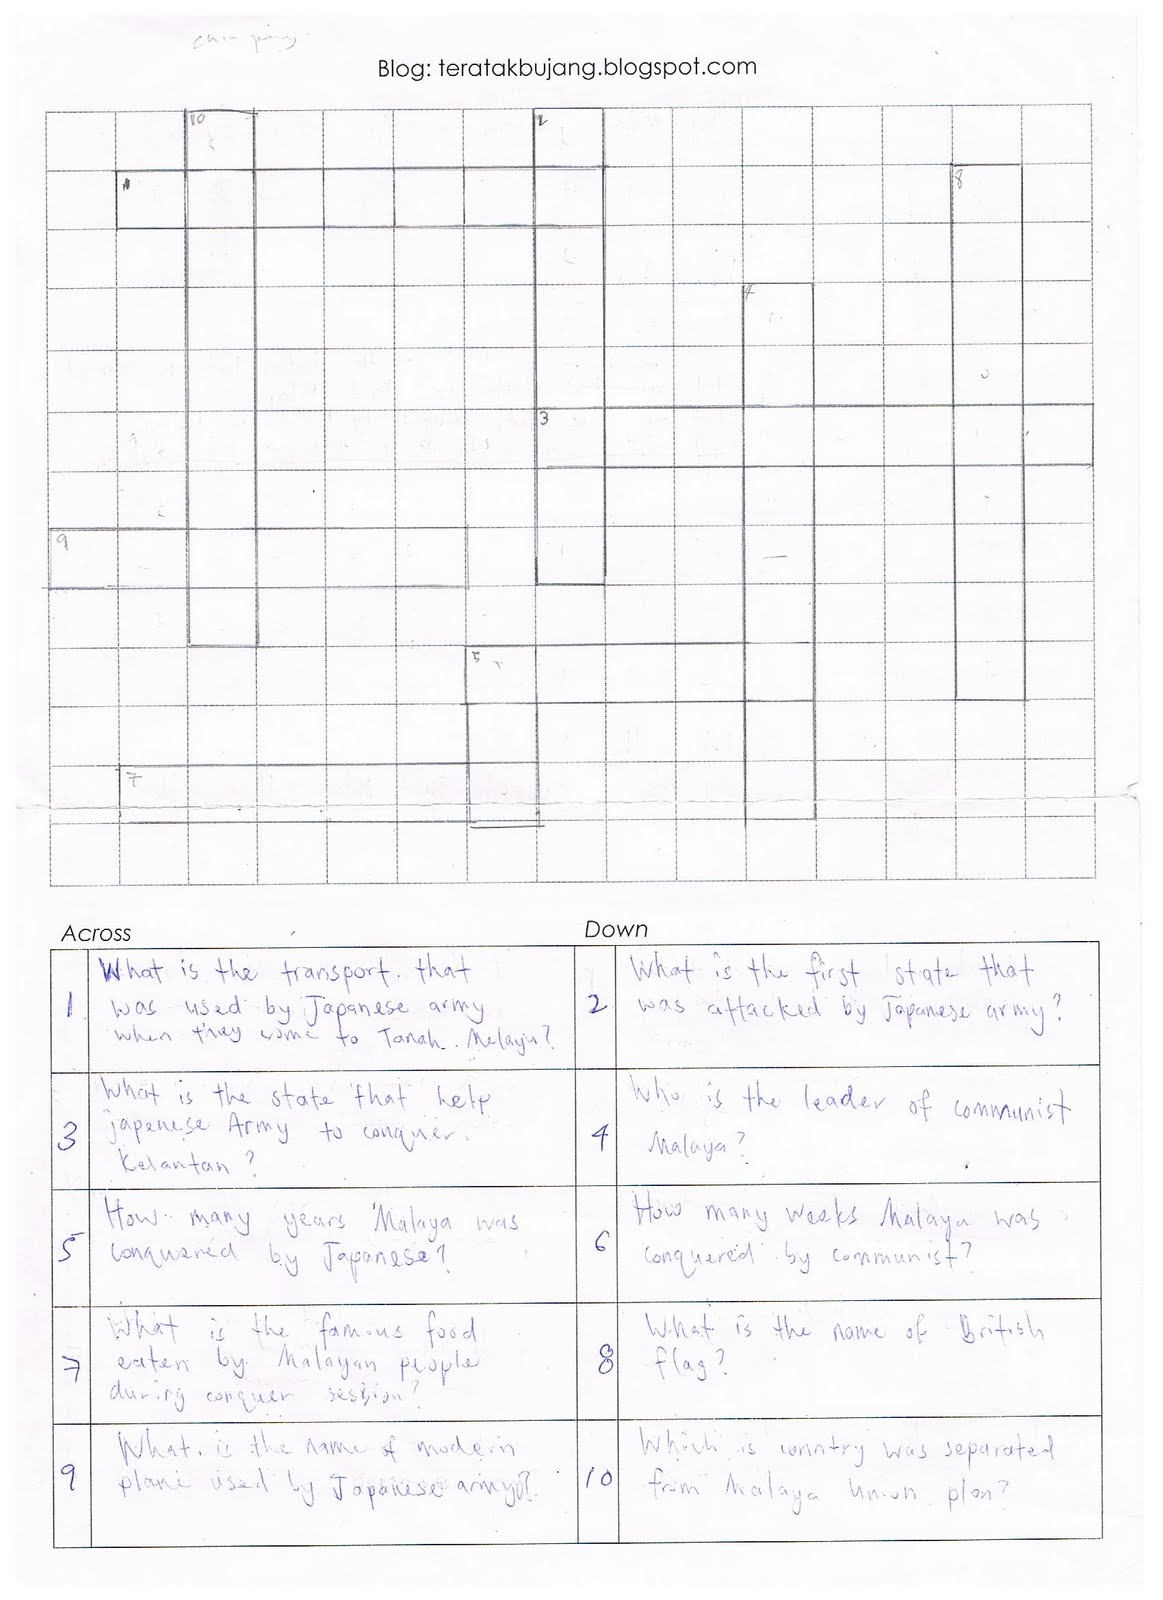 chin peng
Blog: teratakbujang.blogspot.com
10
2
1
8
4
3
9
5
7
Across
Down
1
What is the transport that
was used by Japanese army
when they come to Tanah Melayu?
2
What is the first state that
was attacked by Japanese army?
3
What is the state that help
japanese Army to conquer
Kelantan ?
4
Who is the leader of communist
Malaya?
5
How many years Malaya was
conquered by Japanese?
6
How many weeks Malaya was
conquered by communist?
7
What is the famous food
eaten by Malayan people
during conquer session?
8
What is the name of British
flag?
9
What is the name of modern
plane used by Japanese army?
10
Which is country was separated
from Malaya Union plan?